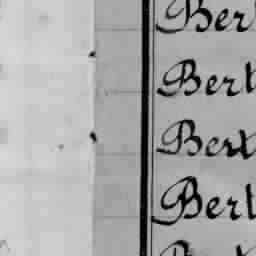 Bert
Bert
Bert
Bert